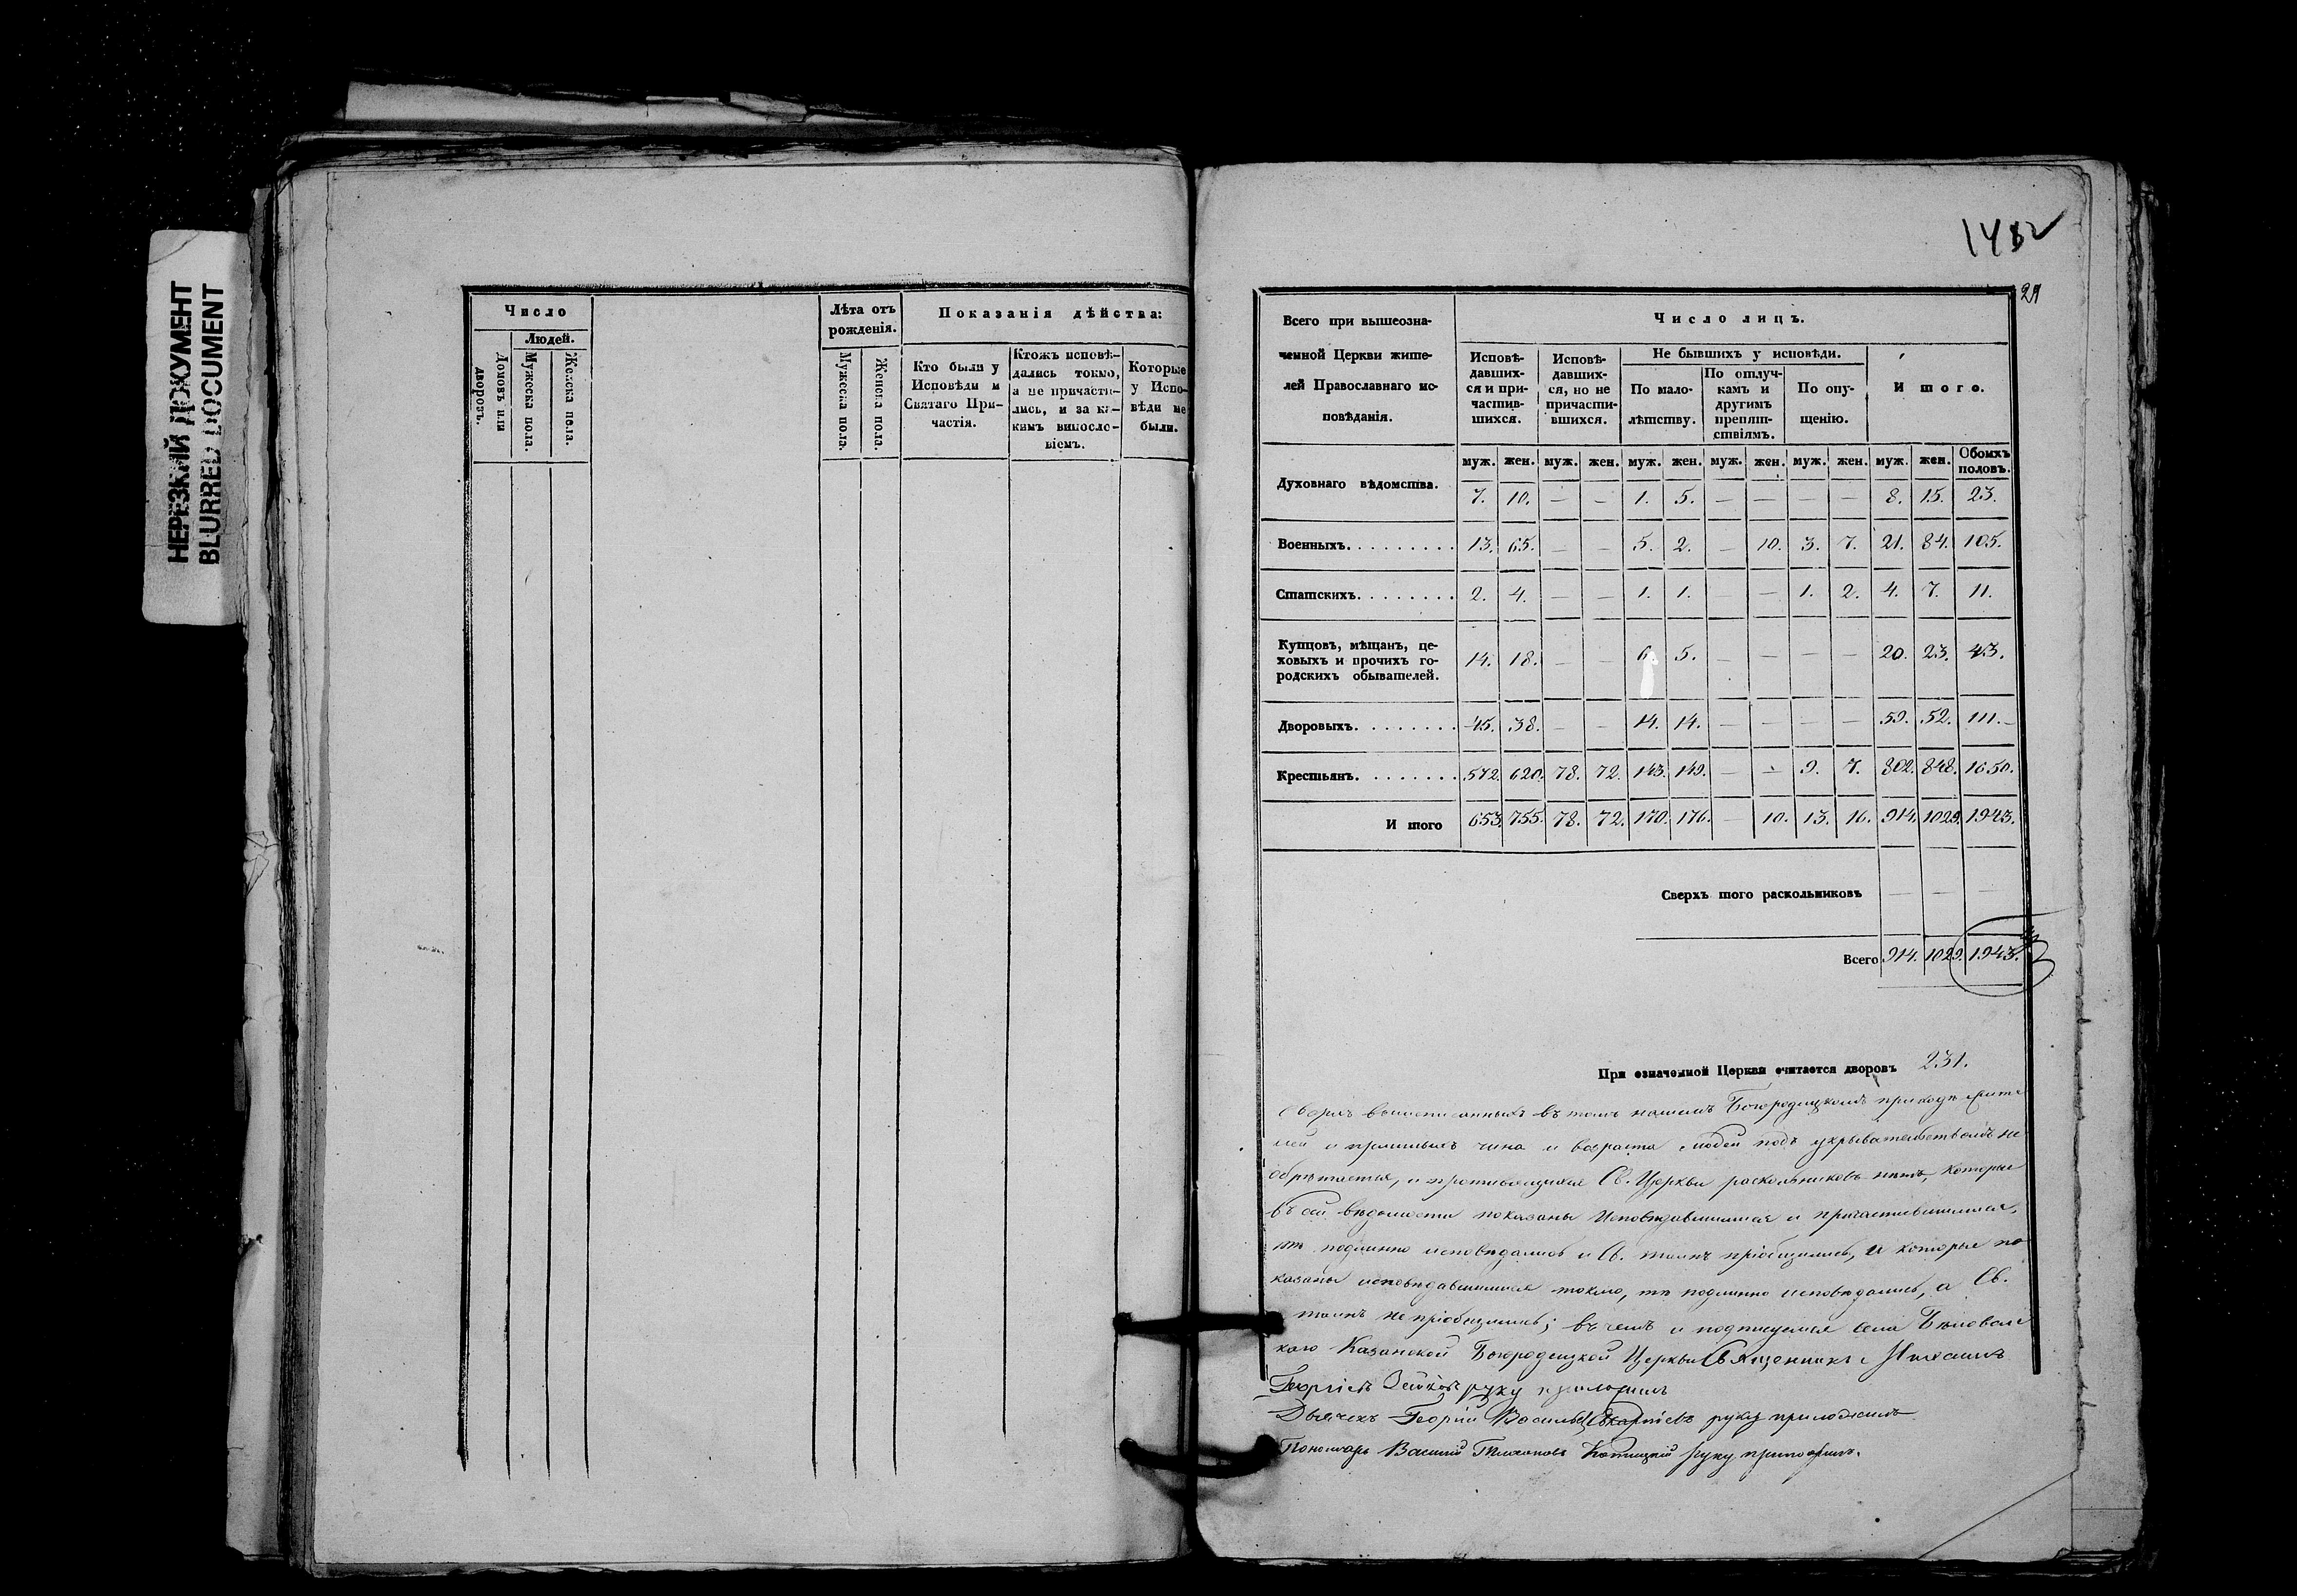 НЕРЕЗКИЙ ДОКУМЕНТ
BLURRED DOCUMENT
Число
Людей.
Домовъ или дворовъ.
Мужеска пола.
Женска пола.
Лѣта отъ рожденія.
Мужеска пола.
Женска пола.
Показанія дѣйства:
Кто были у
Исповѣди и
Святаго При-
частія.
Ктожъ исповѣ-
дались токмо,
а не причасти-
лись, и за ка-
кимъ винословіемъ.
Которые
у Испо-
вѣди не
были.
29
Всего при вышеозна-
ченной Церкви жите-
лей Православнаго ис-
повѣданія.
Число лицъ.
Исповѣ-
давших-
ся и при-
частив-
шихся.
Исповѣ-
давших-
ся, но не
причасти-
вшихся.
Не бывшихъ у исповѣди.
По мало-
лѣтству.
По отлуч-
камъ и
другимъ
препят-
ствіямъ.
По опу-
щенію.
И того.
муж. жен. муж. жен. муж. жен. муж. жен. муж. жен. муж. жен. Обоихъ половъ.
Духовнаго вѣдомства. 7. 10. — — 1. 5. — — — — 8. 15. 23.
Военныхъ. . . . . . . . . 13. 65. — — 5. 2. — 10. 3. 7. 21. 84. 105.
Статскихъ. . . . . . . . 2. 4. — — 1. 1. — 1. 2. 4. 7. 11.
Купцовъ, мѣщанъ, це-
ховыхъ и прочихъ го-
родскихъ обывателей. 14. 18. — — 6. 5. — — — — 20. 23. 43.
Дворовыхъ. . . . . . . . 45. 38. — — 14. 14. — — — — 59. 52. 111.
Крестьянъ. . . . . . . . 572. 620. 78. 72. 143. 149. — — 9. 7. 802. 848. 1650.
И того 653. 755. 78. 72. 170. 176. — 10. 13. 16. 914. 1029. 1943.
Сверхъ того раскольниковъ — — —
Всего 914. 1029. 1943.
При означенной Церкви считается дворовъ 231.
въ томъ нашемъ Богородицкомъ приходѣ жите
лей и чина и возраста людей подъ укрывательствомъ не
обрѣтается, и Св. Церкви раскольниковъ нѣтъ, которые
въ сей вѣдомости показаны исповѣдавшимися и причастившимися,
тѣ подлинно исповѣдались и Св. таинъ пріобщились, а которые по
казаны исповѣдавшимися токмо, тѣ подлинно исповѣдались, а Св.
таинъ не пріобщились; въ чемъ и подписуемся села
Казанской Богородицкой Церкви Священникъ Михаилъ
Георгіевъ руку приложилъ
Дьячекъ Георгій руку приложилъ
Пономарь Василій руку приложилъ.